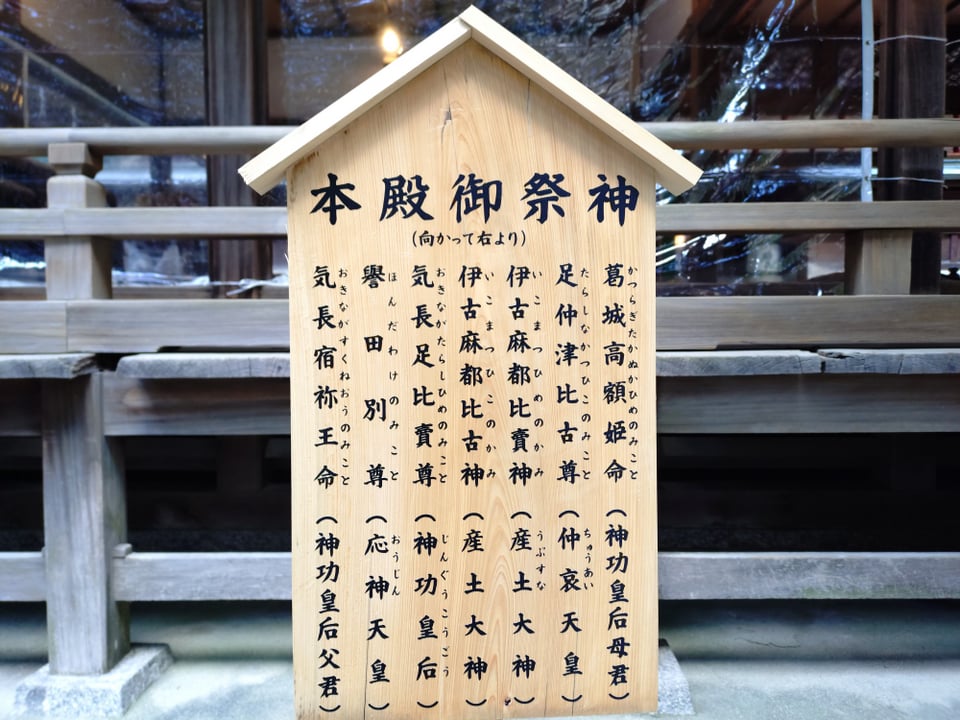 本殿御祭神
(向かって右より)
葛城高額姫命(神功皇后母君)
かつらぎたかぬかひめのみこと
足仲津比古尊(仲哀天皇)
たらしなかつひこのみこと
ちゅうあい
伊古麻都比賣神(産土大神)
いこまつひめのかみ
うぶすな
伊古麻都比古神(産土大神)
いこまつひこのかみ
気長足比賣尊(神功皇后)
おきながたらしひめのみこと
じんぐうこうごう
譽田別尊(応神天皇)
ほんだわけのみこと
おうじん
気長宿祢王命(神功皇后父君)
おきながすくねおうのみこと